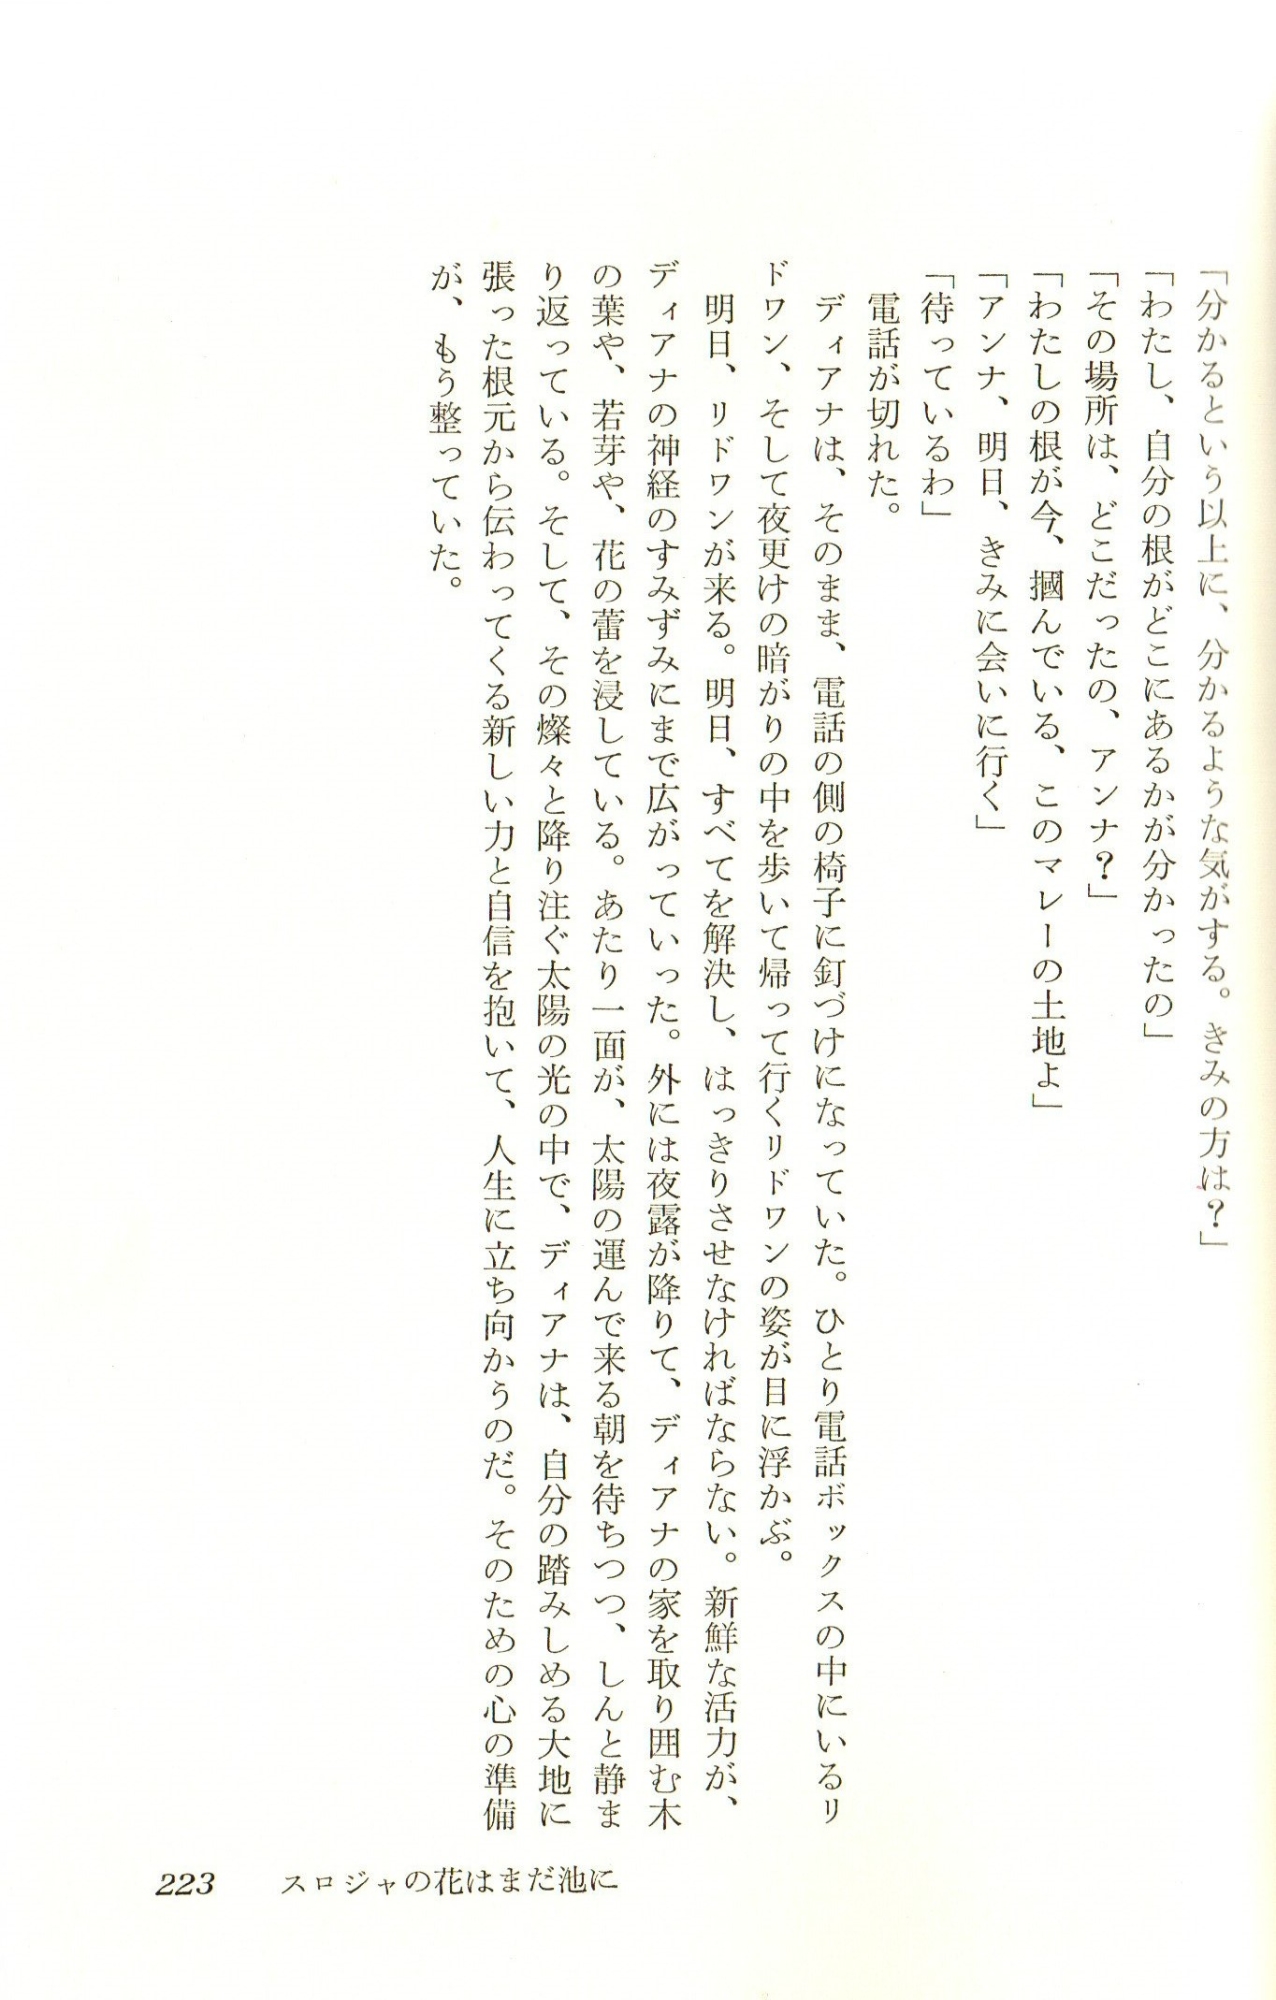 「分かるという以上に、分かるような気がする。きみの方は？」
「わたし、自分の根がどこにあるかが分かったの」
「その場所は、どこだったの、アンナ？」
「わたしの根が今、摑んでいる、このマレーの土地よ」
「アンナ、明日、きみに会いに行く」
「待っているわ」
電話が切れた。
ディアナは、そのまま、電話の側の椅子に釘づけになっていた。ひとり電話ボックスの中にいるリ
ドワン、そして夜更けの暗がりの中を歩いて帰って行くリドワンの姿が目に浮かぶ。
明日、リドワンが来る。明日、すべてを解決し、はっきりさせなければならない。新鮮な活力が、
ディアナの神経のすみずみにまで広がっていった。外には夜露が降りて、ディアナの家を取り囲む木
の葉や、若芽や、花の蕾を浸している。あたり一面が、太陽の運んで来る朝を待ちつつ、しんと静ま
り返っている。そして、その燦々と降り注ぐ太陽の光の中で、ディアナは、自分の踏みしめる大地に
張った根元から伝わってくる新しい力と自信を抱いて、人生に立ち向かうのだ。そのための心の準備
が、もう整っていた。
223 スロジャの花はまだ池に